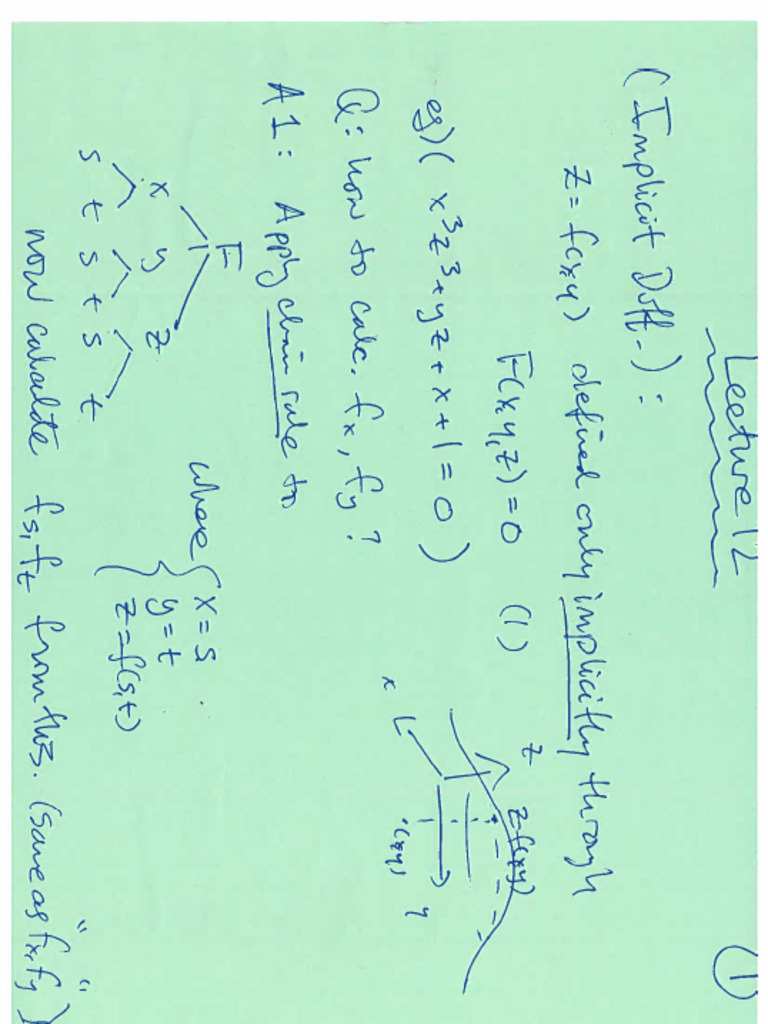 Lecture 12
(1)
(Implicit Diff.):
z = f(x,y) defined only implicitly through
F(x,y,z) = 0 (1)
eg) ( x³z³ + yz + x + 1 = 0 )
z
z=f(x,y)
x
(x,y)
y
Q: how to calc. fx, fy ?
A1: Apply chain rule to
F
x y z
s t s t s t
where { x = s
y = t
z = f(s,t)
now calculate fs, ft from this. (same as "fx, fy")